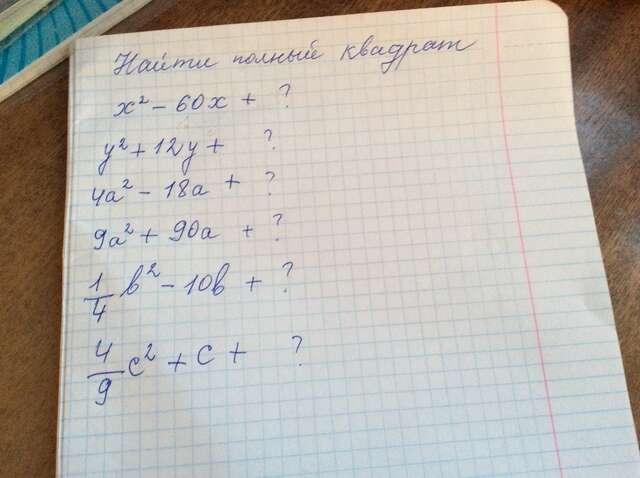 Найти полный квадрат
x² - 60x + ?
y² + 12y + ?
4a² - 18a + ?
9a² + 90a + ?
1/4 b² - 10b + ?
4/9 c² + c + ?